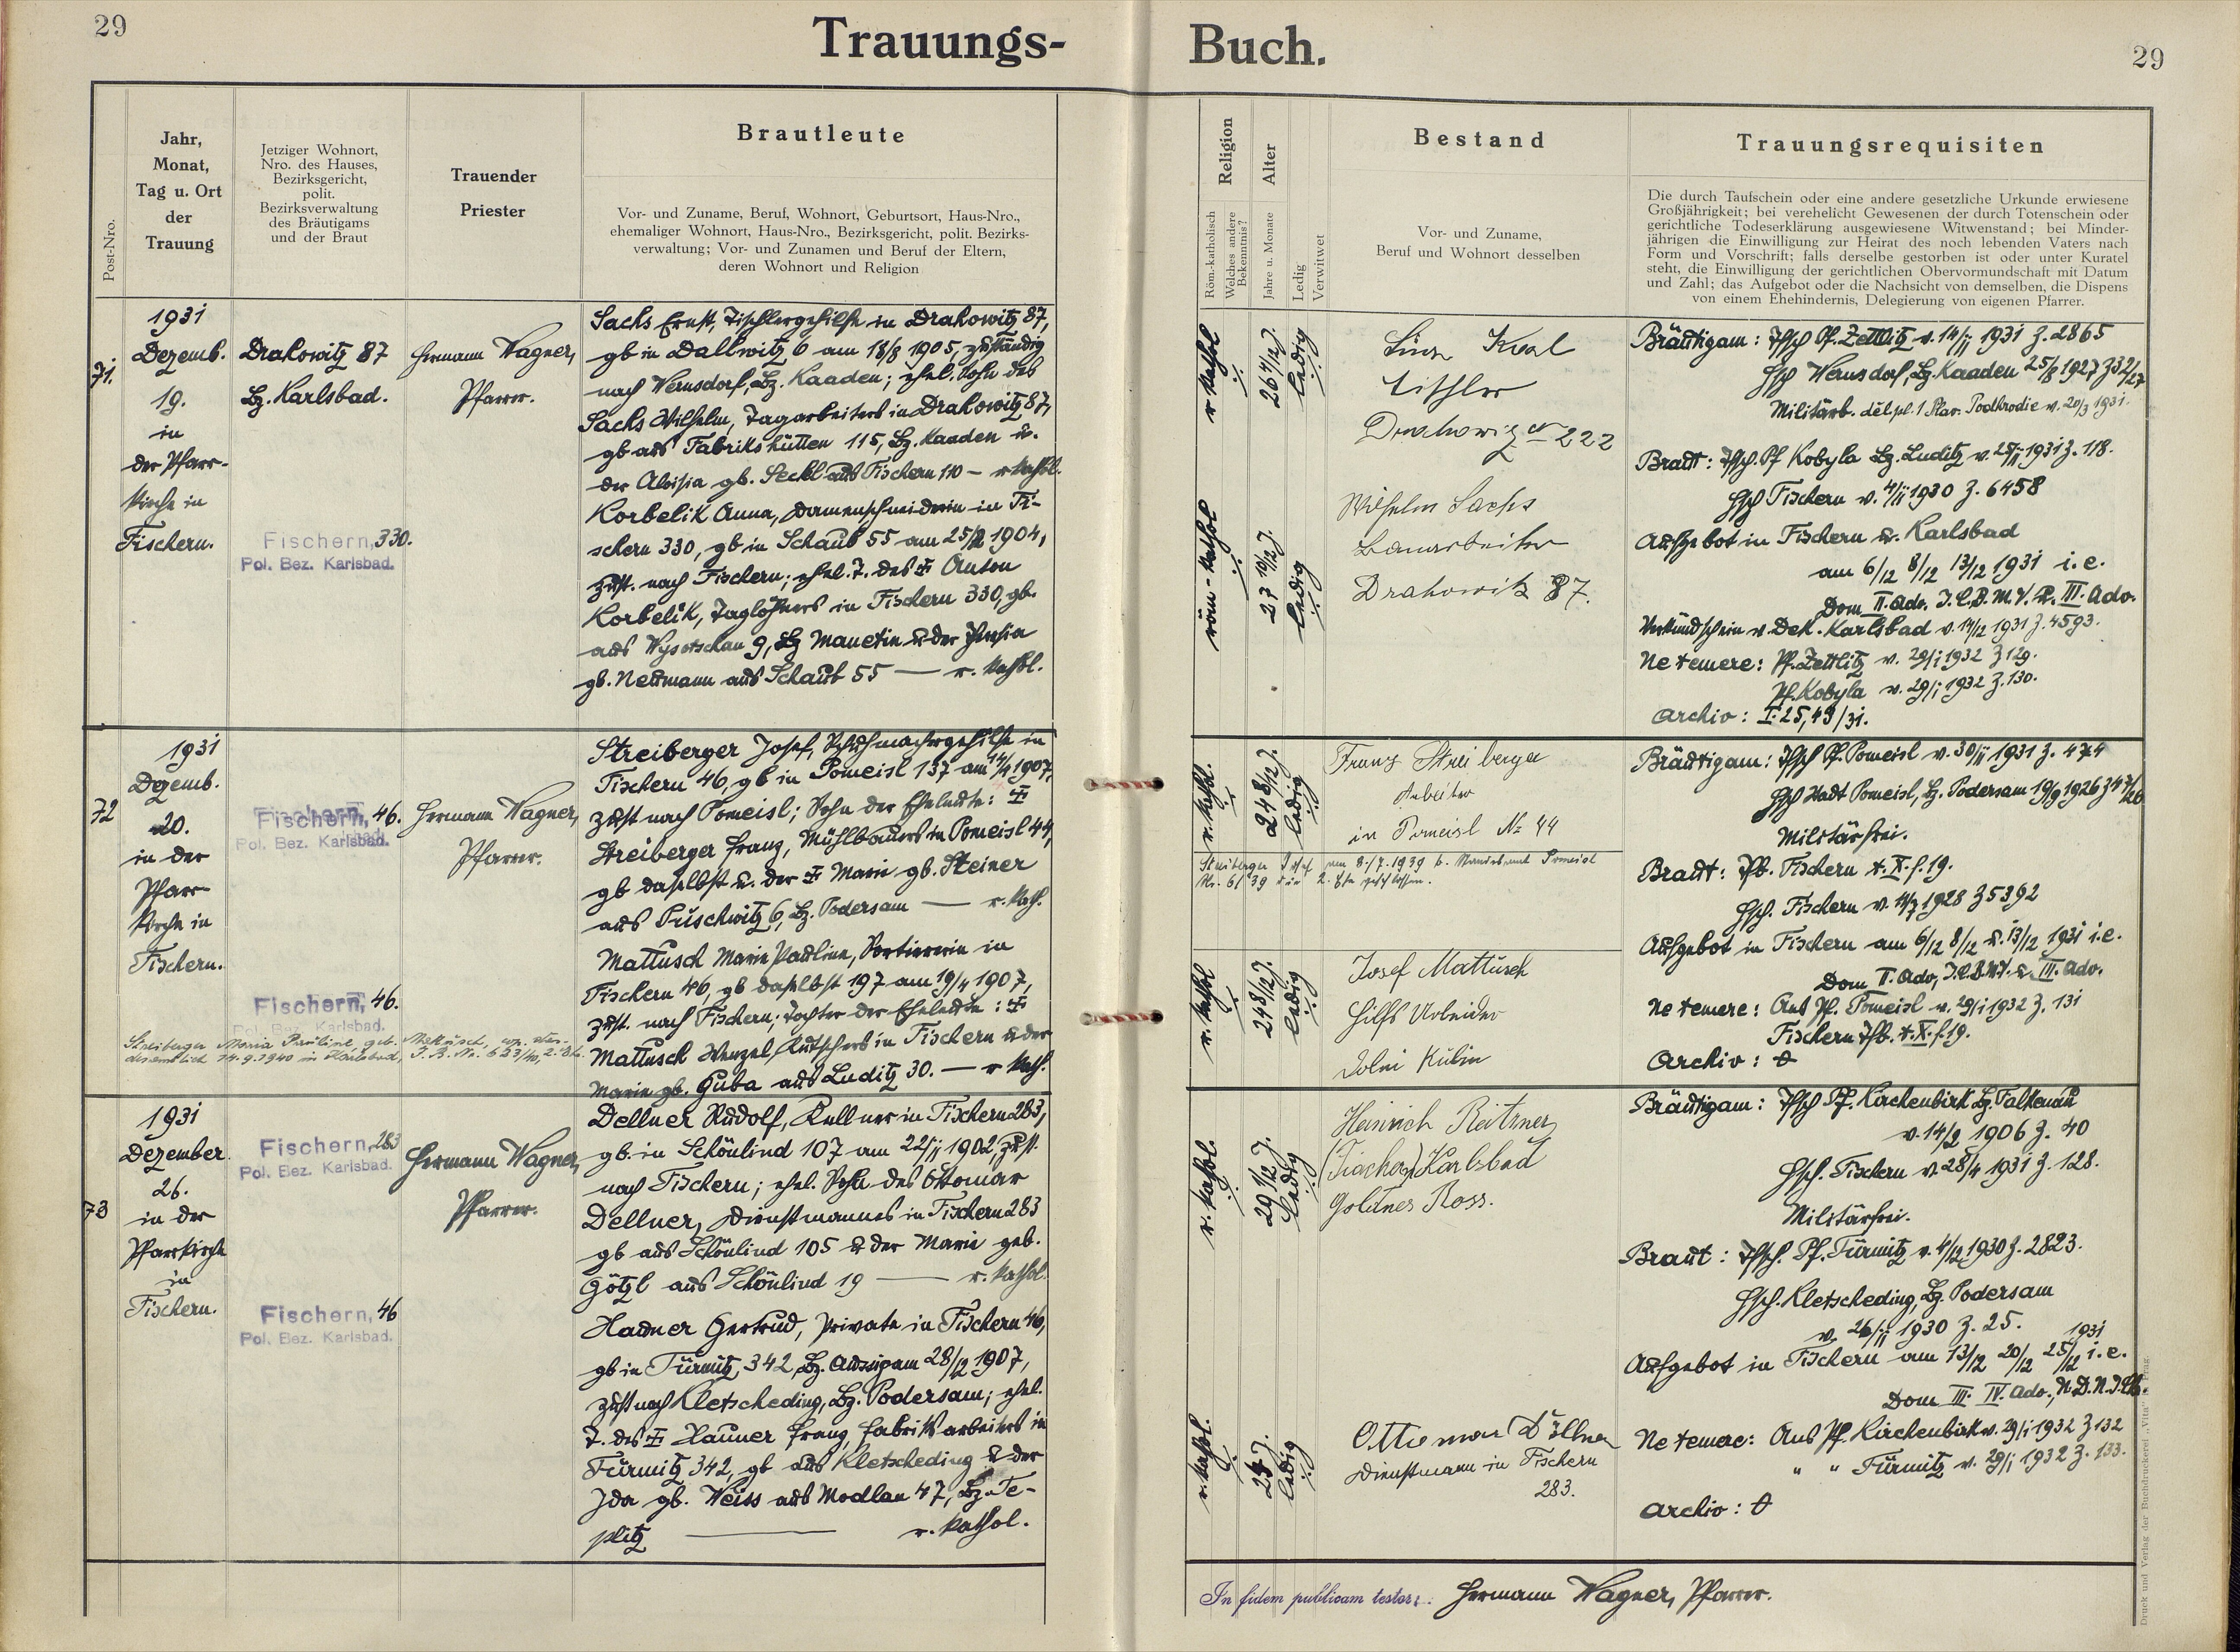 29
Trauungs-
Buch.
29
Post-Nro.
Jahr,
Monat,
Tag u. Ort
der
Trauung
Jetziger Wohnort,
Nro. des Hauses,
Bezirksgericht,
polit.
Bezirksverwaltung
des Bräutigams
und der Braut
Trauender
Priester
Brautleute
Vor- und Zuname, Beruf, Wohnort, Geburtsort, Haus-Nro.,
ehemaliger Wohnort, Haus-Nro., Bezirksgericht, polit. Bezirks-
verwaltung; Vor- und Zunamen und Beruf der Eltern,
deren Wohnort und Religion
Religion
Röm.-katholisch
Welches andere
Bekenntnis?
Alter
Jahre u. Monate
Ledig
Verwitwet
Bestand
Vor- und Zuname,
Beruf und Wohnort desselben
Trauungsrequisiten
Die durch Taufschein oder eine andere gesetzliche Urkunde erwiesene
Großjährigkeit; bei verehelicht Gewesenen der durch Totenschein oder
gerichtliche Todeserklärung ausgewiesene Witwenstand; bei Minder-
jährigen die Einwilligung zur Heirat des noch lebenden Vaters nach
Form und Vorschrift; falls derselbe gestorben ist oder unter Kuratel
steht, die Einwilligung der gerichtlichen Obervormundschaft mit Datum
und Zahl; das Aufgebot oder die Nachsicht von demselben, die Dispens
von einem Ehehindernis, Delegierung von eigenen Pfarrer.
71.
1931
Dezemb.
19.
in
der Pfarr-
kirche in
Fischern.
Drahowitz 87
Bz. Karlsbad.
Fischern, 330.
Pol. Bez. Karlsbad.
Hermann Wagner,
Pfarrer.
Sachs Ernst, Tischlergehilfe in Drahowitz 87,
gb in Dallwitz 6 am 18/8 1905, zuständig
nach Wernsdorf, Bz. Kaaden; ehel. Sohn des
Sachs Wilhelm, Tagarbeiters in Drahowitz 87,
gb aus Fabrikshütten 115, Bz. Kaaden u.
der Aloisia gb. Seckl aus Fischern 110 — r. kathol.
Korbelik Anna, Damenschneiderin in Fi-
schern 330, gb in Schaub 55 am 25/2 1904,
zust. nach Fischern; ehel. T. des Anton
Korbelik, Taglöhners in Fischern 330, gb.
aus Wysotschan 9, Bz Manetin u der
gb. Neumann aus Schaub 55 — r. kathol.
r. kathol
26 4/12 J.
ledig
röm-kathol
27 10/12 J.
ledig
Tischler
Drahowitz No 222
Wilhelm Sachs
Bauarbeiter
Drahowitz 87.
Bräutigam: Tfsch Pf. Zettlitz v. 14/11 1931 Z. 2865
Hsch Wernsdorf, Bz. Kaaden 25/8 1927 Z 32/27
Braut: Tfsch. Pf Kobyla Bz. Luditz v. 1931 Z. 118.
Hsch Fischern v. 4/11 1930 Z. 6458
Aufgebot in Fischern u. Karlsbad
am 6/12 8/12 13/12 1931 i.e.
Dom II. Adv. I.C.B.M.V. u. III. Adv.
Verkündschein v. Dek. Karlsbad v. 14/12 1931 Z. 4593.
Ne temere: Pf. Zettlitz v. 29/1 1932 Z 129.
Pf. Kobyla v. 29/1 1932 Z. 130.
Archiv: I. 25, 49/31.
72
1931
Dezemb.
20.
in der
Pfarr-
kirche in
Fischern.
Fischern, 46.
Pol. Bez. Karlsbad.
Fischern, 46.
Pol. Bez. Karlsbad.
Hermann Wagner,
Pfarrer.
Streiberger Josef, Schuhmachergehilfe in
Fischern 46, gb in Pomeisl 137 am 14/4 1907,
zust nach Pomeisl; Sohn der Eheleute:
Streiberger Franz, Mühlbauers in Pomeisl 44,
gb daselbst u. der Marie gb. Steiner
aus Puschwitz 6, Bz. Podersam — r. kath.
Mattusch Marie Pauline, Sortiererin in
Fischern 46, gb daselbst 197 am 19/4 1907,
zust. nach Fischern; Tochter der Eheleute:
Mattusch Wenzel, Kutschers in Fischern u der
Marie gb. Guba aus Luditz 30. — r kath.
Streiberger Maria Pauline, geb. Mattusch,
14.9.1940 in Karlsbad,
r. kathol.
24 8/12 J.
ledig
r. kathol
24 8/12 J.
ledig
Franz Streiberger
Arbeiter
in Pomeisl No 44
Streiberger Josef am 8./7.1939 b. Standesamt Pomeisl
Nr. 6/39 die 2. Ehe geschlossen.
Josef Mattusch
Hilfs Arbeider
Dolni Rubin
Bräutigam: Tfsch Pf. Pomeisl v. 30/11 1931 Z. 474
Hsch Stadt Pomeisl, Bz. Podersam 19/9 1926
Militärfrei.
Braut: Tfb. Fischern t. X. f. 19.
Hsch. Fischern v. 14/7 1928 Z 5392
Aufgebot in Fischern am 6/12 8/12 u. 13/12 1931 i.e.
Dom II. Adv, I.C.B.M.V. u. III. Adv.
Ne temere: Aus Pf. Pomeisl v. 29/1 1932 Z. 131
Fischern Tfb. t. X. f. 19.
Archiv: 0
73
1931
Dezember
26.
in der
Pfarrkirche
in
Fischern.
Fischern, 283
Pol. Bez. Karlsbad.
Fischern, 46
Pol. Bez. Karlsbad.
Hermann Wagner,
Pfarrer.
Dellner Rudolf, Kellner in Fischern 283,
gb. in Schönlind 107 am 22/11 1902, zust.
nach Fischern; ehel. Sohn des Ottomar
Dellner, Dienstmannes in Fischern 283
gb aus Schönlind 105 u der Marie geb.
Götzl aus Schönlind 19 — r. kathol.
Hauner Gertrud, Private in Fischern 46,
gb in Türmitz 342, Bz. Aussig am 28/12 1907,
zust nach Kletscheding, Bz. Podersam; ehel.
T. des Hauner Franz, Fabriksarbeiters in
Türmitz 342, gb aus Kletscheding u der
Ida gb. Weiss aus Modlan 47, Bz. Te-
plitz — r. kathol.
r. kathol.
29 1/12 J.
ledig
r. kathol.
ledig
Heinrich Reitzner
(Fiacker) Karlsbad
Goldnes Ross.
Dienstmann in Fischern
283.
Bräutigam: Tfsch Pf. Kirchenbirk Bz. Falkenau
v. 14/2 1906 Z. 40
Hsch. Fischern v. 28/4 1931 Z. 128.
Militärfrei.
Braut: Tfsch. Pf. Türmitz v. 4/12 1930 Z. 2823.
Hsch. Kletscheding, Bz. Podersam
v. 26/11 1930 Z. 25.
Aufgebot in Fischern am 13/12 20/12 25/12 1931 i.e.
Dom III. IV. Adv., N.D.N.J.Ch.
Ne temere: Aus Pf. Kirchenbirk v. 29/1 1932 Z 132
" " Türmitz v. 29/1 1932 Z. 133.
Archiv: 0
In fidem publicam testor: Hermann Wagner, Pfarrer.